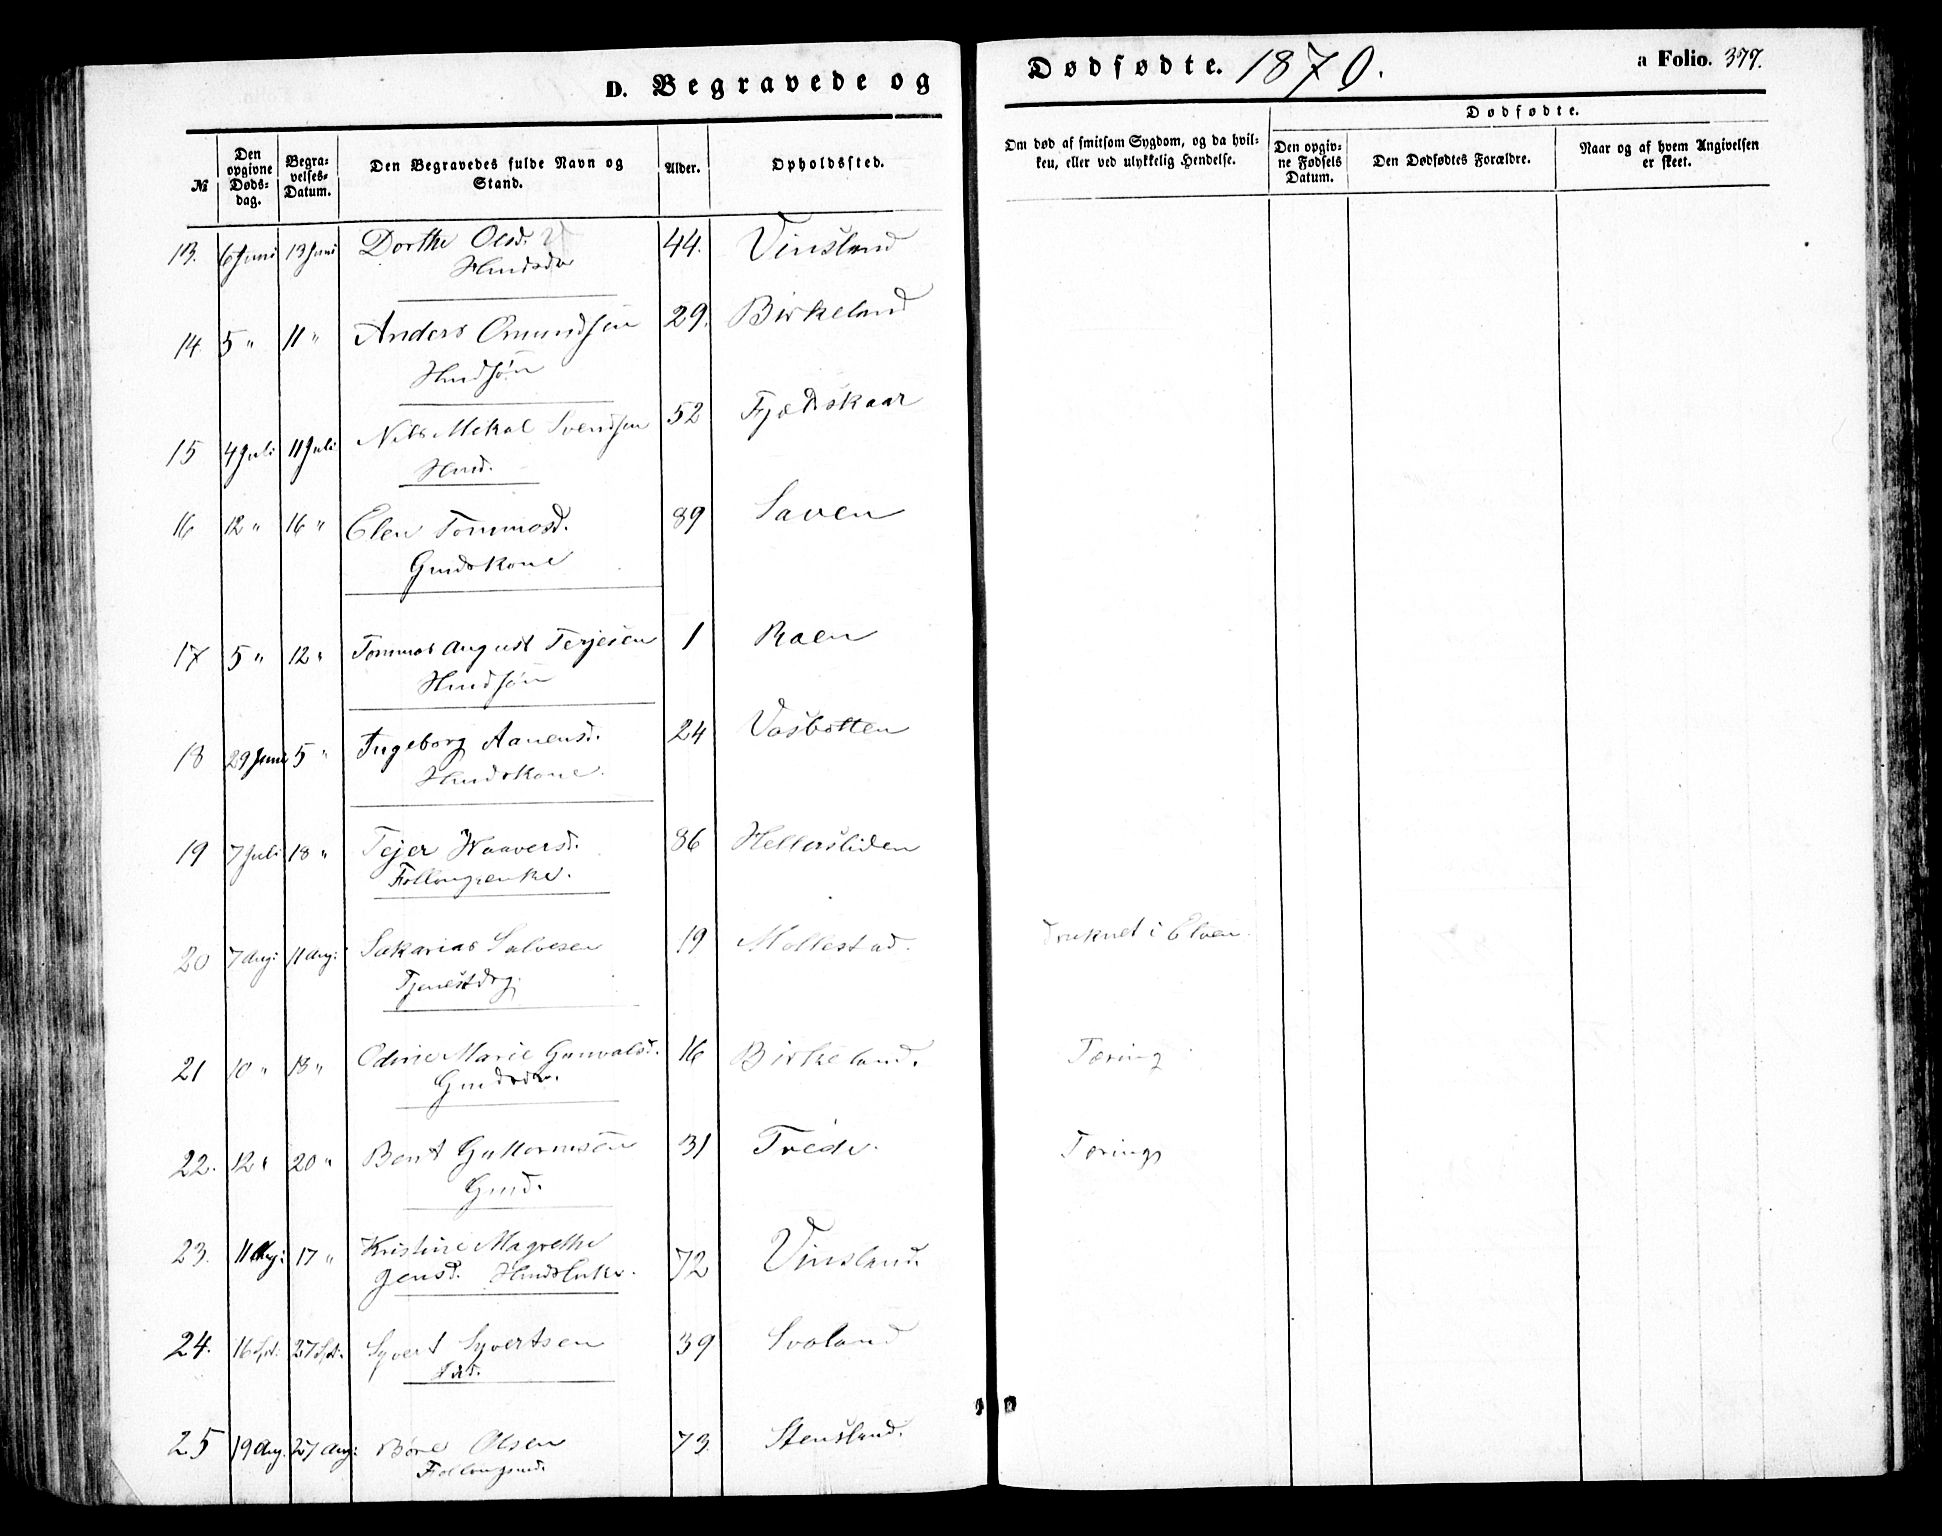 D. Begravede og Dødfødte. 1870. a Folio. 377.
Dødfødte.
№ Den opgivne Døds-dag. Begra-velses-Datum. Den Begravedes fulde Navn og Stand. Alder. Opholdssted. Om død af smitsom Sygdom, og da hvil-ken, eller ved ulykkelig Hendelse. Den opgiv-ne Fødsels Datum. Den Dødfødtes Forældre. Naar og af hvem Angivelsen er skeet.
13. 6 Juni 13 Juni Dorthe Olsd. 44. Vinsland
Hmdsdr
14. 5 " 11 " Anders Omundsen 29. Birkeland
Hmdsøn
15 4 Juli 11 Juli Nils Mikal Svendsen 52 Fjeldskaar
Hmd.
16 12 " 16 " Elen Tommasd. 89 Laven
Gmdskone
17 5 " 12 " Tommas August Terjesen 1 Raen
Hmdsøn
18 29 Juni 5 " Ingeborg Aanensd. 24 Vasbotten
Hmdskone.
19 7 Juli 18 " Tejer Haaversd. 86 Hellersliden
Follougsenke.
20 7 Aug: 11 Aug: Sakarias Salvesen 19 Mollestad.
Tjenestdrg. Druknet i Elven.
21 10 " 18 " Odine Marie Gunvalsd. 16 Birkeland. Tæring
Gmdsdr.
22. 12 " 20 " Bent Guttormsen 31 Trede. Tæring
Gmd.
23. 11 Aug: 17 " Kristine Magrethe
Jensd. Hmdsenke. 72 Vinsland.
24. 16 Spt: 27 Spt. Syvert Syvertsen 39 Svaland
25 19 Aug. 27 Aug: Børe Olsen 73 Stensland.
Follougsmd.